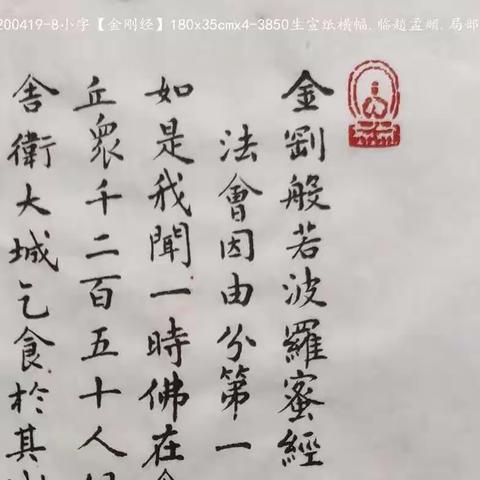 200419-8小字【金刚经】180x35cmx4-3850生宣纸横幅.临赵孟頫.局部
金剛般若波羅蜜經
法會因由分第一
如是我聞一時佛在
丘眾千二百五十人
舍衛大城乞食於其